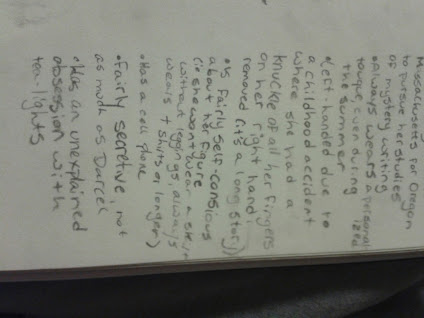 Massachusetts for Oregon
to pursue her studies
of mystery writing
•Always wears a personal
ized
toque, even during
the summer
•Left-handed due to
a childhood accident
where she had a
knuckle of all her fingers
on her right hand
removed (it's a long story)
•Is fairly self-consious
about her figure
(ie: she wont wear a skirt
without leggings, always
wears t-shirts or longer)
•Has a cell phone
•Fairly secretive, not
as much as Darcel
•Has an unexplained
obsession with
tea-lights